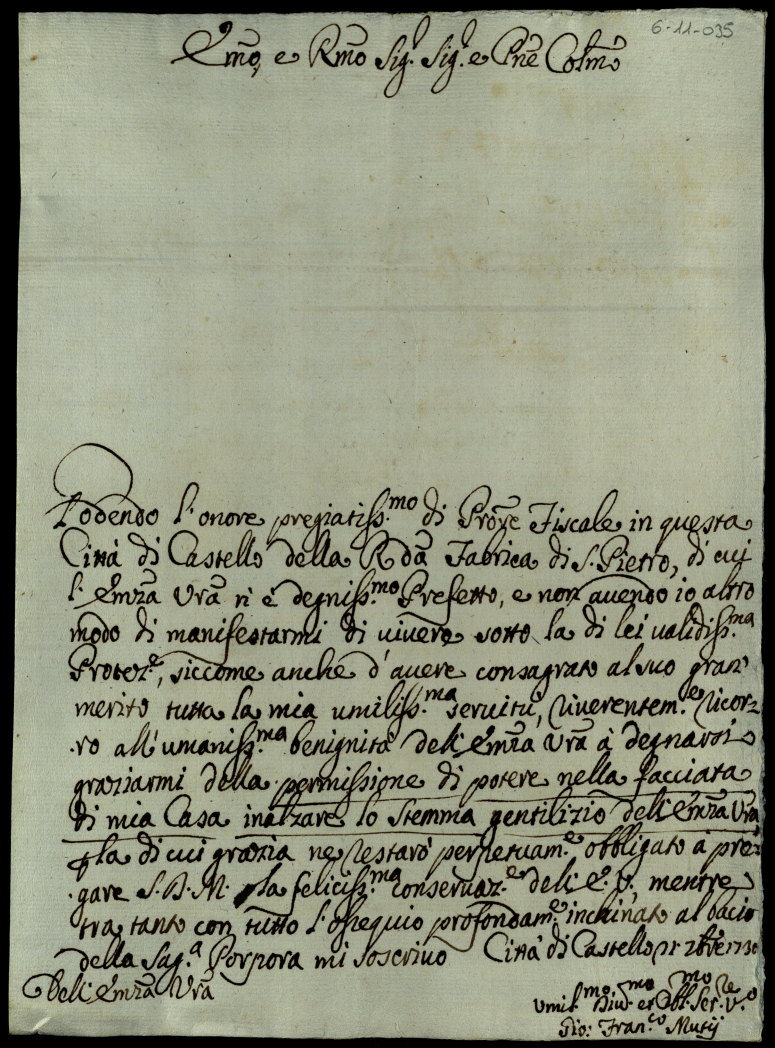 6-11-035
Emo, e Rmo Sig.r Sig.r e Pne Colmo
Godendo l'onore pregiatiss.mo di Proye Fiscale in questa
Città di Castello della Rda Fabrica di S. Pietro, di cui
l'Emza Vra n'è degniss.mo Prefetto, e non avendo io altro
modo di manifestarmi di vivere sotto la di lei validiss.ma
Protez.e, siccome anche d'avere consagrato al suo gran
merito tutta la mia umiliss.ma servitù, riverentem.e ricor=
=ro all'umaniss.ma benignità dell'Emza Vra à degnarsi
graziarmi della permissione di potere nella facciata
di mia Casa inalzare lo Stemma gentilizio dell'Emza Vra
p la di cui grazia ne restarò perpetuam.e obbligato à pre=
=gare S. D. M. p la feliciss.ma conservaz.e dell'E. V., mentre
tra tanto con tutto l'ossequio profondam.e inchinato al bacio
della Sag.a Porpora mi soscrivo Città di Castello
Dell'Emza Vra
Umil.mo Div.mo et Obbl.mo Ser.re V.o
Gio: Fran.co Mutij